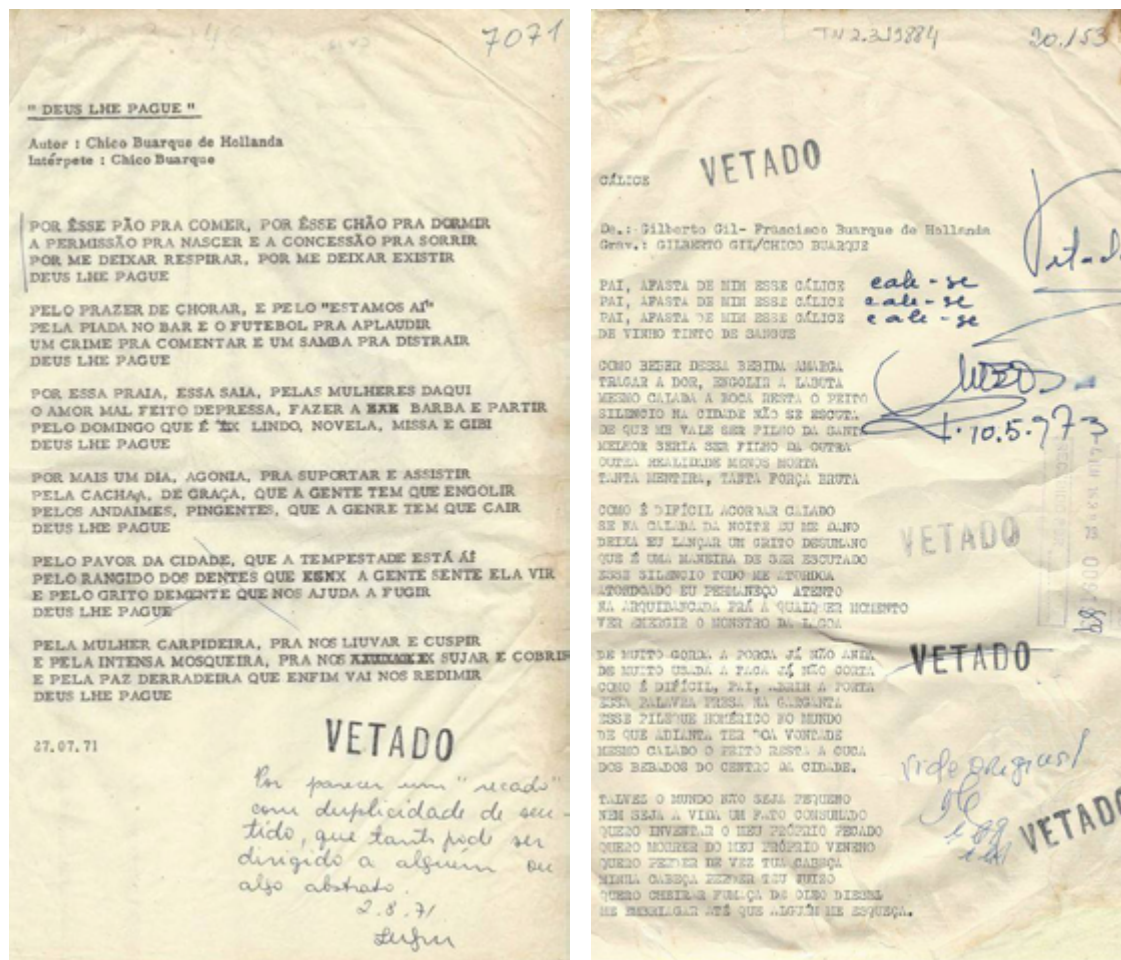 7071
" DEUS LHE PAGUE "
Autor : Chico Buarque de Hollanda
Intérpete : Chico Buarque
POR ÊSSE PÃO PRA COMER, POR ÊSSE CHÃO PRA DORMIR
A PERMISSÃO PRA NASCER E A CONCESSÃO PRA SORRIR
POR ME DEIXAR RESPIRAR, POR ME DEIXAR EXISTIR
DEUS LHE PAGUE
PELO PRAZER DE CHORAR, E PELO "ESTAMOS AÍ"
PELA PIADA NO BAR E O FUTEBOL PRA APLAUDIR
UM CRIME PRA COMENTAR E UM SAMBA PRA DISTRAIR
DEUS LHE PAGUE
POR ESSA PRAIA, ESSA SAIA, PELAS MULHERES DAQUI
O AMOR MAL FEITO DEPRESSA, FAZER A BARBA E PARTIR
PELO DOMINGO QUE É LINDO, NOVELA, MISSA E GIBI
DEUS LHE PAGUE
POR MAIS UM DIA, AGONIA, PRA SUPORTAR E ASSISTIR
PELA CACHAÇA, DE GRAÇA, QUE A GENTE TEM QUE ENGOLIR
PELOS ANDAIMES, PINGENTES, QUE A GENRE TEM QUE CAIR
DEUS LHE PAGUE
PELO PAVOR DA CIDADE, QUE A TEMPESTADE ESTÁ ÁÍ
PELO RANGIDO DOS DENTES QUE A GENTE SENTE ELA VIR
E PELO GRITO DEMENTE QUE NOS AJUDA A FUGIR
DEUS LHE PAGUE
PELA MULHER CARPIDEIRA, PRA NOS LIUVAR E CUSPIR
E PELA INTENSA MOSQUEIRA, PRA NOS SUJAR E COBRIR
E PELA PAZ DERRADEIRA QUE ENFIM VAI NOS REDIMIR
DEUS LHE PAGUE
27.07.71
VETADO
Por parecer um "recado"
com duplicidade de sen-
tido, que tanto pode ser
dirigido a alguém ou
algo abstrato.
2.8.71
TN 2.3.19884
20.153
VETADO
CÁLICE
De.:- Gilberto Gil- Francisco Buarque de Hollanda
Grav.: GILBERTO GIL/CHICO BUARQUE
Vetado
PAI, AFASTA DE MIM ESSE CÁLICE cale-se
PAI, AFASTA DE MIM ESSE CÁLICE cale-se
PAI, AFASTA DE MIM ESSE CÁLICE cale-se
DE VINHO TINTO DE SANGUE
COMO BEBER DESSA BEBIDA AMARGA
TRAGAR A DOR, ENGOLIR A LABUTA
MESMO CALADA A BOCA RESTA O PEITO
SILENCIO NA CIDADE NÃO SE ESCUTA
DE QUE ME VALE SER FILHO DA SANTA
MELHOR SERIA SER FILHO DA OUTRA
OUTRA REALIDADE MENOS MORTA
TANTA MENTIRA, TANTA FORÇA BRUTA
10.5.973
COMO É DIFÍCIL ACORDAR CALADO
SE NA CALADA DA NOITE EU ME DANO
DEIXA EU LANÇAR UM GRITO DESUMANO
QUE É UMA MANEIRA DE SER ESCUTADO
ESSE SILENCIO TODO ME ATORDOA
ATORDOADO EU PERMANEÇO ATENTO
NA ARQUIBANCADA PRÁ A QUALQUER MOMENTO
VER EMERGIR O MONSTRO DA LAGOA
VETADO
DE MUITO GORDA A PORCA JÁ NÃO ANDA
DE MUITO USADA A FACA JÁ NÃO CORTA
COMO É DIFÍCIL, PAI, ABRIR A PORTA
ESSA PALAVRA PRESA NA GARGANTA
ESSE PILEQUE HOMÉRICO NO MUNDO
DE QUE ADIANTA TER BOA VONTADE
MESMO CALADO O PEITO RESTA A CUCA
DOS BEBADOS DO CENTRO DA CIDADE.
VETADO
vide original
TALVES O MUNDO NÃO SEJA PEQUENO
NEM SEJA A VIDA UM FATO CONSUMADO
QUERO INVENTAR O MEU PRÓPRIO PECADO
QUERO MORRER DO MEU PRÓPRIO VENENO
QUERO PERDER DE VEZ TUA CABEÇA
MINHA CABEÇA PERDER TEU JUIZO
QUERO CHEIRAR FUMAÇA DE OLEO DIESEL
ME EMBRIAGAR ATÉ QUE ALGUÉM ME ESQUEÇA.
VETADO